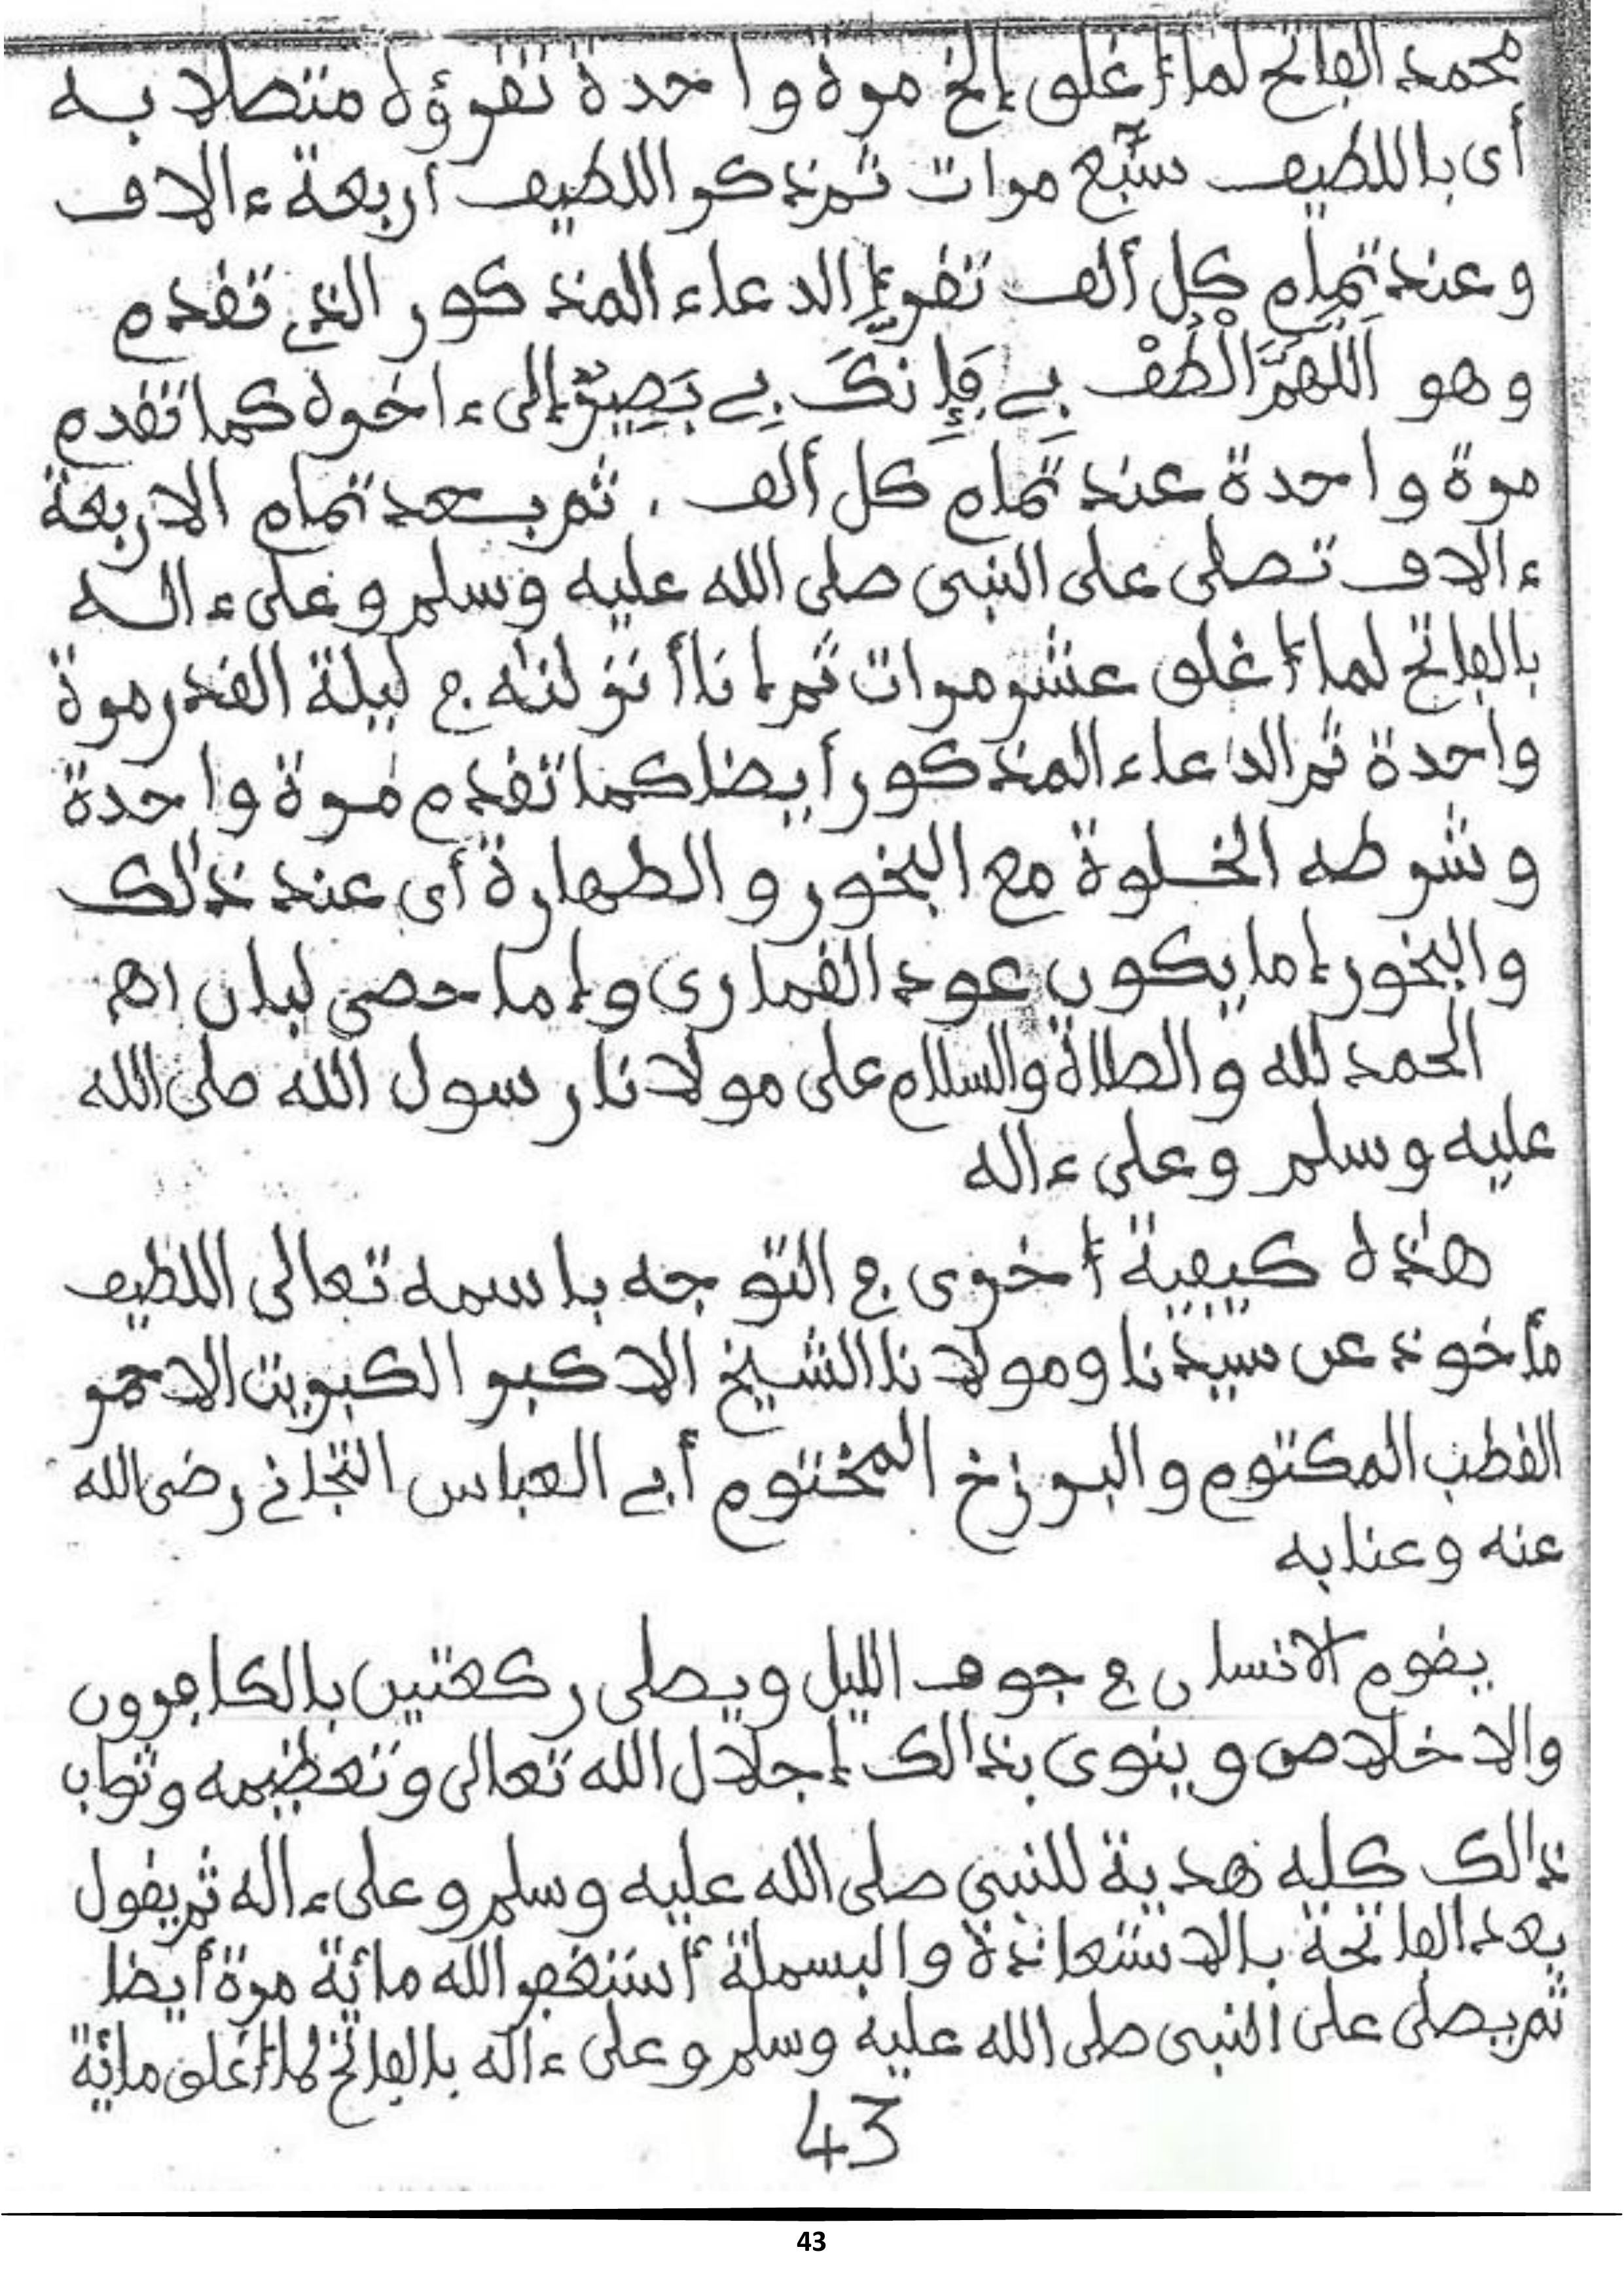 محمد الفاتح لما أغلق إلخ مرة واحدة تقرؤه متصلا به
أى باللطيف سبع مرات ثم نذكر اللطيف أربعة ءالاف
وعند تمام كل ألف تقرإ الدعاء المذكور الذي تقدم
وهو اَللَّهُمَّ الْطُفْ بِے فَإِنكَ بِے بَصِيرٌ إلى ءاخره كما تقدم
مرة واحدة عند تمام كل ألف . ثم بعد تمام الاربعة
ءالاف تصلى على النبى صلى الله عليه وسلم وعلى ءاله
بالفاتح لما أغلق عشر مرات ثم إنا أنزلنه في ليلة القدر مرة
واحدة ثم الدعاء المذكور أيضا كما تقدم مرة واحدة
وشرطه الخلوة مع البخور والطهارة أى عند ذلك
والبخور إما يكون عود القمارى وإما حصى لبان اهـ
الحمد لله والصلاة والسلام على مولانا رسول الله صلى الله
عليه وسلم وعلى ءاله
هذه كيفية أخرى في التوجه باسمه تعالى اللطيف
مأخوذ عن سيدنا ومولانا الشيخ الاكبر الكبريت الاحمر
القطب المكتوم والبرزخ المختوم أبے العباس التجانے رضى الله
عنه وعنا به
يقوم الانسان في جوف الليل ويصلى ركعتين بالكافرون
والاخلاص وينوى بذالك إجلال الله تعالى وتعظيمه وثواب
ذالك كله هدية للنبي صلى الله عليه وسلم وعلى ءاله ثم يقول
بعد الفاتحة بالاستعاذة والبسملة أستغفر الله مائة مرة أيضا
ثم يصلى على النبى صلى الله عليه وسلم وعلى ءاله بالفاتح لما أغلق مائة
43
43